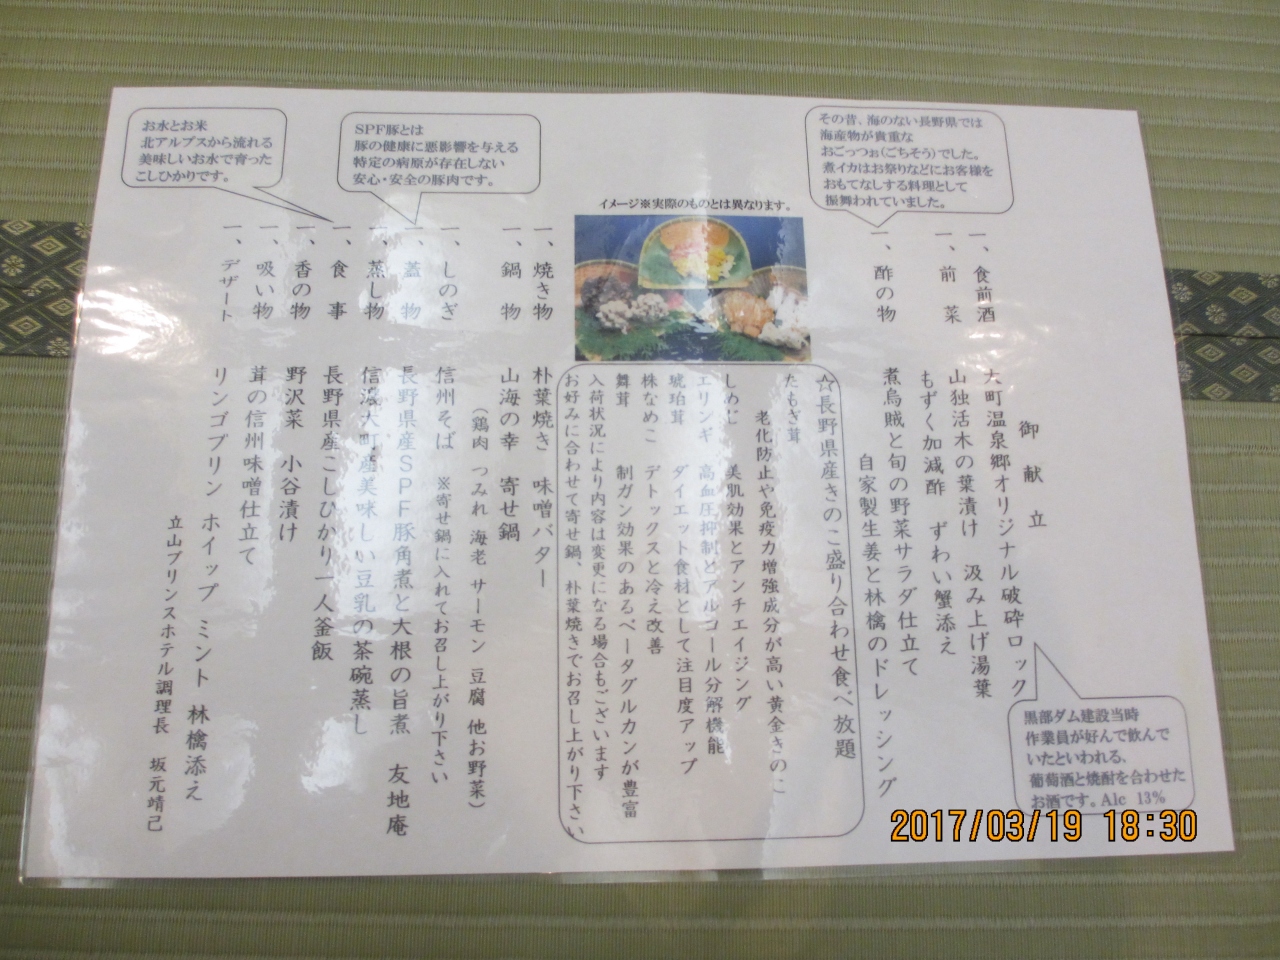 御献立
その昔、海のない長野県では
海産物が貴重な
おごっつぉ(ごちそう)でした。
煮イカはお祭りなどにお客様を
おもてなしする料理として
振舞われていました。
一、食前酒 大町温泉郷オリジナル破砕ロック
黒部ダム建設当時
作業員が好んで飲んで
いたといわれる、
葡萄酒と焼酎を合わせた
お酒です。Alc 13%
一、前菜 山独活木の葉漬け 汲み上げ湯葉
もずく加減酢 ずわい蟹添え
一、酢の物 煮烏賊と旬の野菜サラダ仕立て
自家製生姜と林檎のドレッシング
イメージ※実際のものとは異なります。
☆長野県産きのこ盛り合わせ食べ放題
たもぎ茸
老化防止や免疫力増強成分が高い黄金きのこ
しめじ 美肌効果とアンチエイジング
エリンギ 高血圧抑制とアルコール分解機能
琥珀茸 ダイエット食材として注目度アップ
株なめこ デトックスと冷え改善
舞茸 制ガン効果のあるベータグルカンが豊富
入荷状況により内容は変更になる場合もございます
お好みに合わせて寄せ鍋、朴葉焼きでお召し上がり下さい
一、焼き物 朴葉焼き 味噌バター
一、鍋物 山海の幸 寄せ鍋
(鶏肉 つみれ 海老 サーモン 豆腐 他お野菜)
一、しのぎ 信州そば ※寄せ鍋に入れてお召し上がり下さい
SPF豚とは
豚の健康に悪影響を与える
特定の病原が存在しない
安心・安全の豚肉です。
一、蓋物 長野県産SPF豚角煮と大根の旨煮 友地庵
一、蒸し物 信濃大町産美味しい豆乳の茶碗蒸し
お水とお米
北アルプスから流れる
美味しいお水で育った
こしひかりです。
一、食事 長野県産こしひかり一人釜飯
一、香の物 野沢菜 小谷漬け
一、吸い物 茸の信州味噌仕立て
一、デザート リンゴプリン ホイップ ミント 林檎添え
立山プリンスホテル調理長 坂元靖己
2017/03/19 18:30